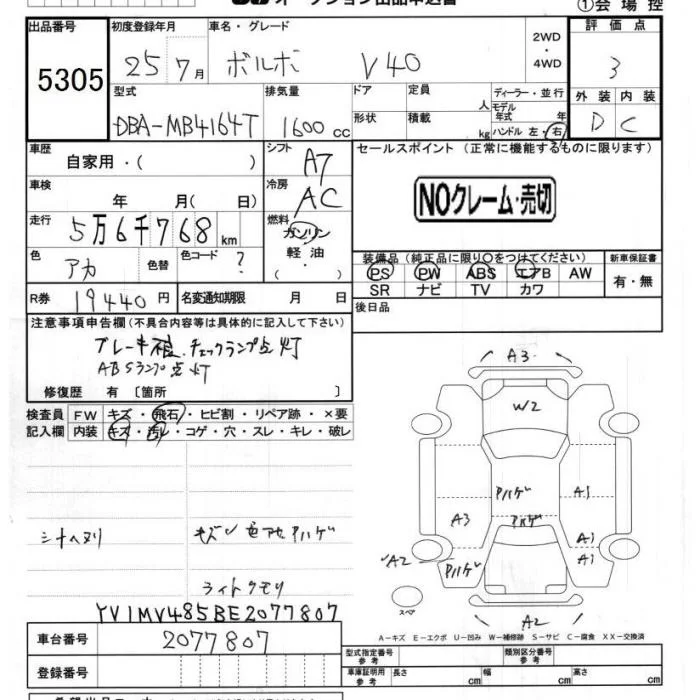 オークション出品申込書
①会場控
出品番号 初度登録年月 車名・グレード 評価点
5305 25 7月 ボルボ V40 2WD・4WD 3
型式 排気量 ドア 定員 人 ディーラー・並行 外装 内装
DBA-MB4164T 1600cc 形状 積載 kg モデル年式 年 ハンドル 左・右 D C
車歴 自家用・( ) シフト A7 セールスポイント (正常に機能するものに限ります)
車検 年 月( 日) 冷房 AC NOクレーム・売切
走行 5万6千768km 燃料 ガソリン 軽油・( )
色 アカ 色替 色コード ? 装備品 (純正品に限り○をつけてください) 新車保証書
PS PW ABS エアB AW 有・無
SR ナビ TV カワ
R券 19440円 名変通知期限 月 日 後日品
注意事項申告欄(不具合内容等は具体的に記入して下さい)
チェックランプ点灯
ABSランプ点灯
修復歴 有 〔箇所 〕
検査員 FW キズ・飛石・ヒビ割・リペア跡・×要
記入欄 内装 キズ・汚レ・コゲ・穴・スレ・キレ・破レ
A3
W2
Aハゲ A1
A3 Aハゲ A1
A2 Aハゲ A1
スペア
A2
キズ 色アセ Aハゲ
ライトクモリ
YV1MV485BE2077807
A-キズ E-エクボ U-凹み W-補修跡 S-サビ C-腐食 XX-交換済
車台番号 2077807
登録番号
型式指定番号 参考 類別区分番号 参考
車庫証明用 参考 長さ cm 幅 cm 高さ cm